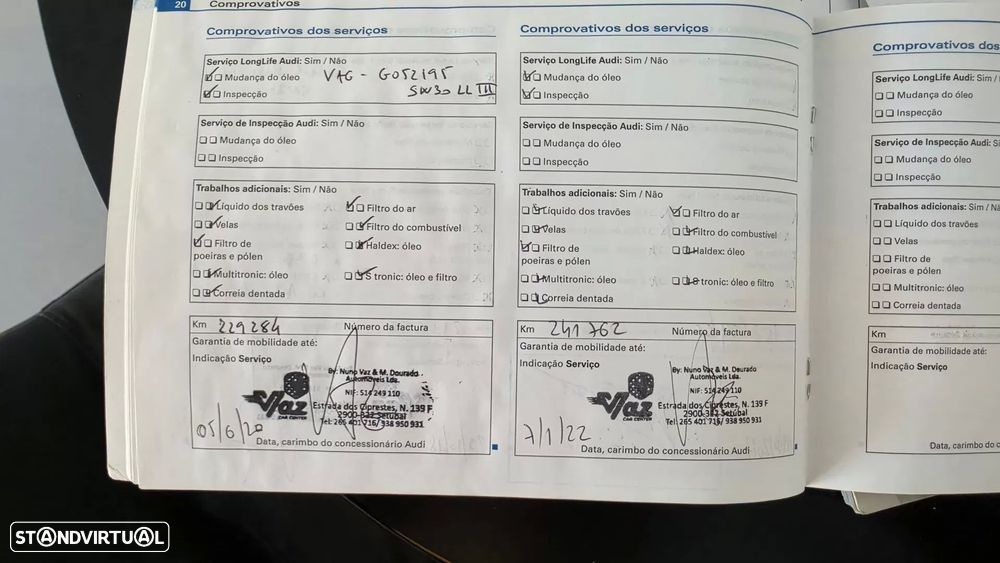 20 Comprovativos
Comprovativos dos serviços
Serviço LongLife Audi: Sim / Não
Mudança do óleo VAG - G052195
Inspecção 5W30 LL III
Serviço de Inspecção Audi: Sim / Não
Mudança do óleo
Inspecção
Trabalhos adicionais: Sim / Não
Líquido dos travões Filtro do ar
Velas Filtro do combustível
Filtro de poeiras e pólen Haldex: óleo
Multitronic: óleo S tronic: óleo e filtro
Correia dentada
Km 229284 Número da factura
Garantia de mobilidade até:
Indicação Serviço
By: Nuno Vaz & M. Dourado
Automóveis Lda.
NIF: 514 249 110
Vaz
CAR CENTER
Estrada dos Ciprestes, N. 139 F
2900-332 Setúbal
Tel: 265 401 716/ 938 950 931
05/6/20
Data, carimbo do concessionário Audi
Comprovativos dos serviços
Serviço LongLife Audi: Sim / Não
Mudança do óleo
Inspecção
Serviço de Inspecção Audi: Sim / Não
Mudança do óleo
Inspecção
Trabalhos adicionais: Sim / Não
Líquido dos travões Filtro do ar
Velas Filtro do combustível
Filtro de poeiras e pólen Haldex: óleo
Multitronic: óleo S tronic: óleo e filtro
Correia dentada
Km 241762 Número da factura
Garantia de mobilidade até:
Indicação Serviço
By: Nuno Vaz & M. Dourado
Automóveis Lda.
NIF: 514 249 110
Vaz
CAR CENTER
Estrada dos Ciprestes, N. 139 F
2900-332 Setúbal
Tel: 265 401 716/ 938 950 931
7/1/22
Data, carimbo do concessionário Audi
Comprovativos dos
Serviço LongLife Audi: Sim /
Mudança do óleo
Inspecção
Serviço de Inspecção Audi: Si
Mudança do óleo
Inspecção
Trabalhos adicionais: Sim / Nã
Líquido dos travões
Velas
Filtro de
poeiras e pólen
Multitronic: óleo
Correia dentada
Km
Garantia de mobilidade até:
Indicação Serviço
Data, carimbo do co
STANDVIRTUAL